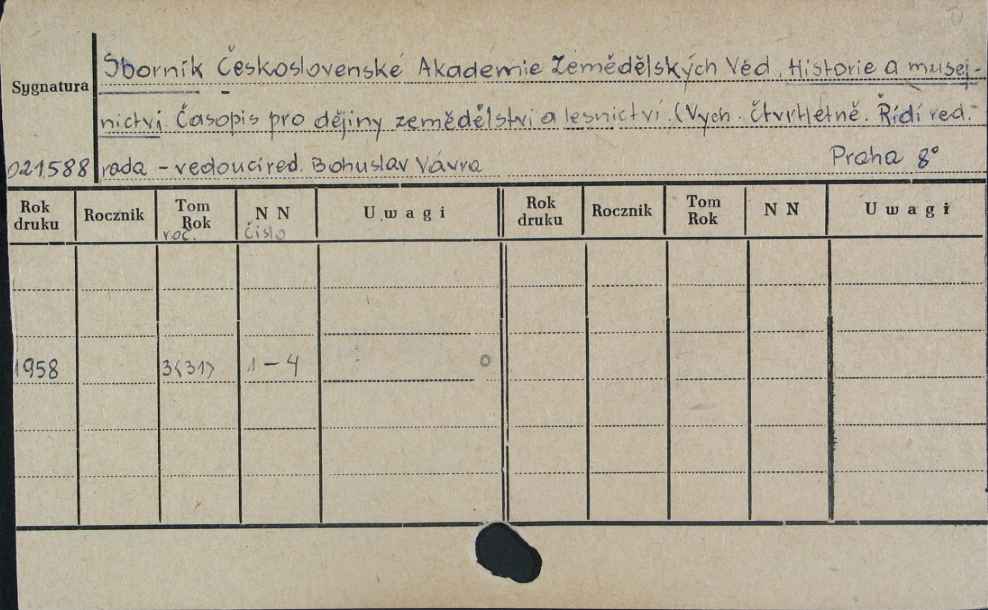 Sygnatura
Sborník Československé Akademie Zemědělských Věd. Historie a musej-
nictví. Časopis pro dějiny zemědělství a lesnictví. (Vych. Čtvrtletně. Řídí red.
021588 rada - vedoucí red. Bohuslav Vávra Praha 8°
Rok druku Rocznik Tom Rok N N Uwagi Rok druku Rocznik Tom Rok N N Uwagi
roč. číslo
1958 3<31> 1-4